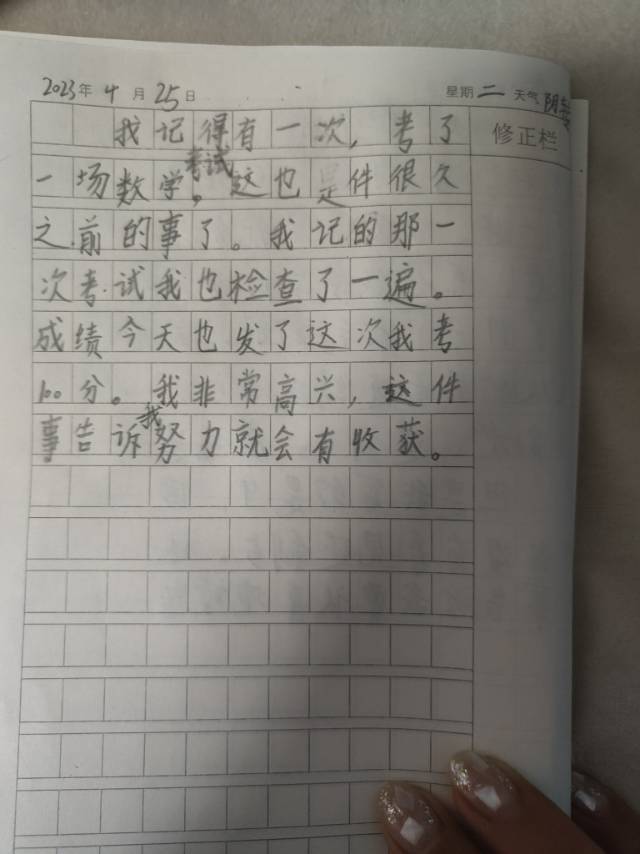 2023年4月25日 星期二 天气阴
修正栏
我记得有一次，考了
一场数学考试，这也是件很久
之前的事了。我记的那一
次考试我也检查了一遍。
成绩今天也发了这次我考
100分。我非常高兴，这件
事告诉我努力就会有收获。